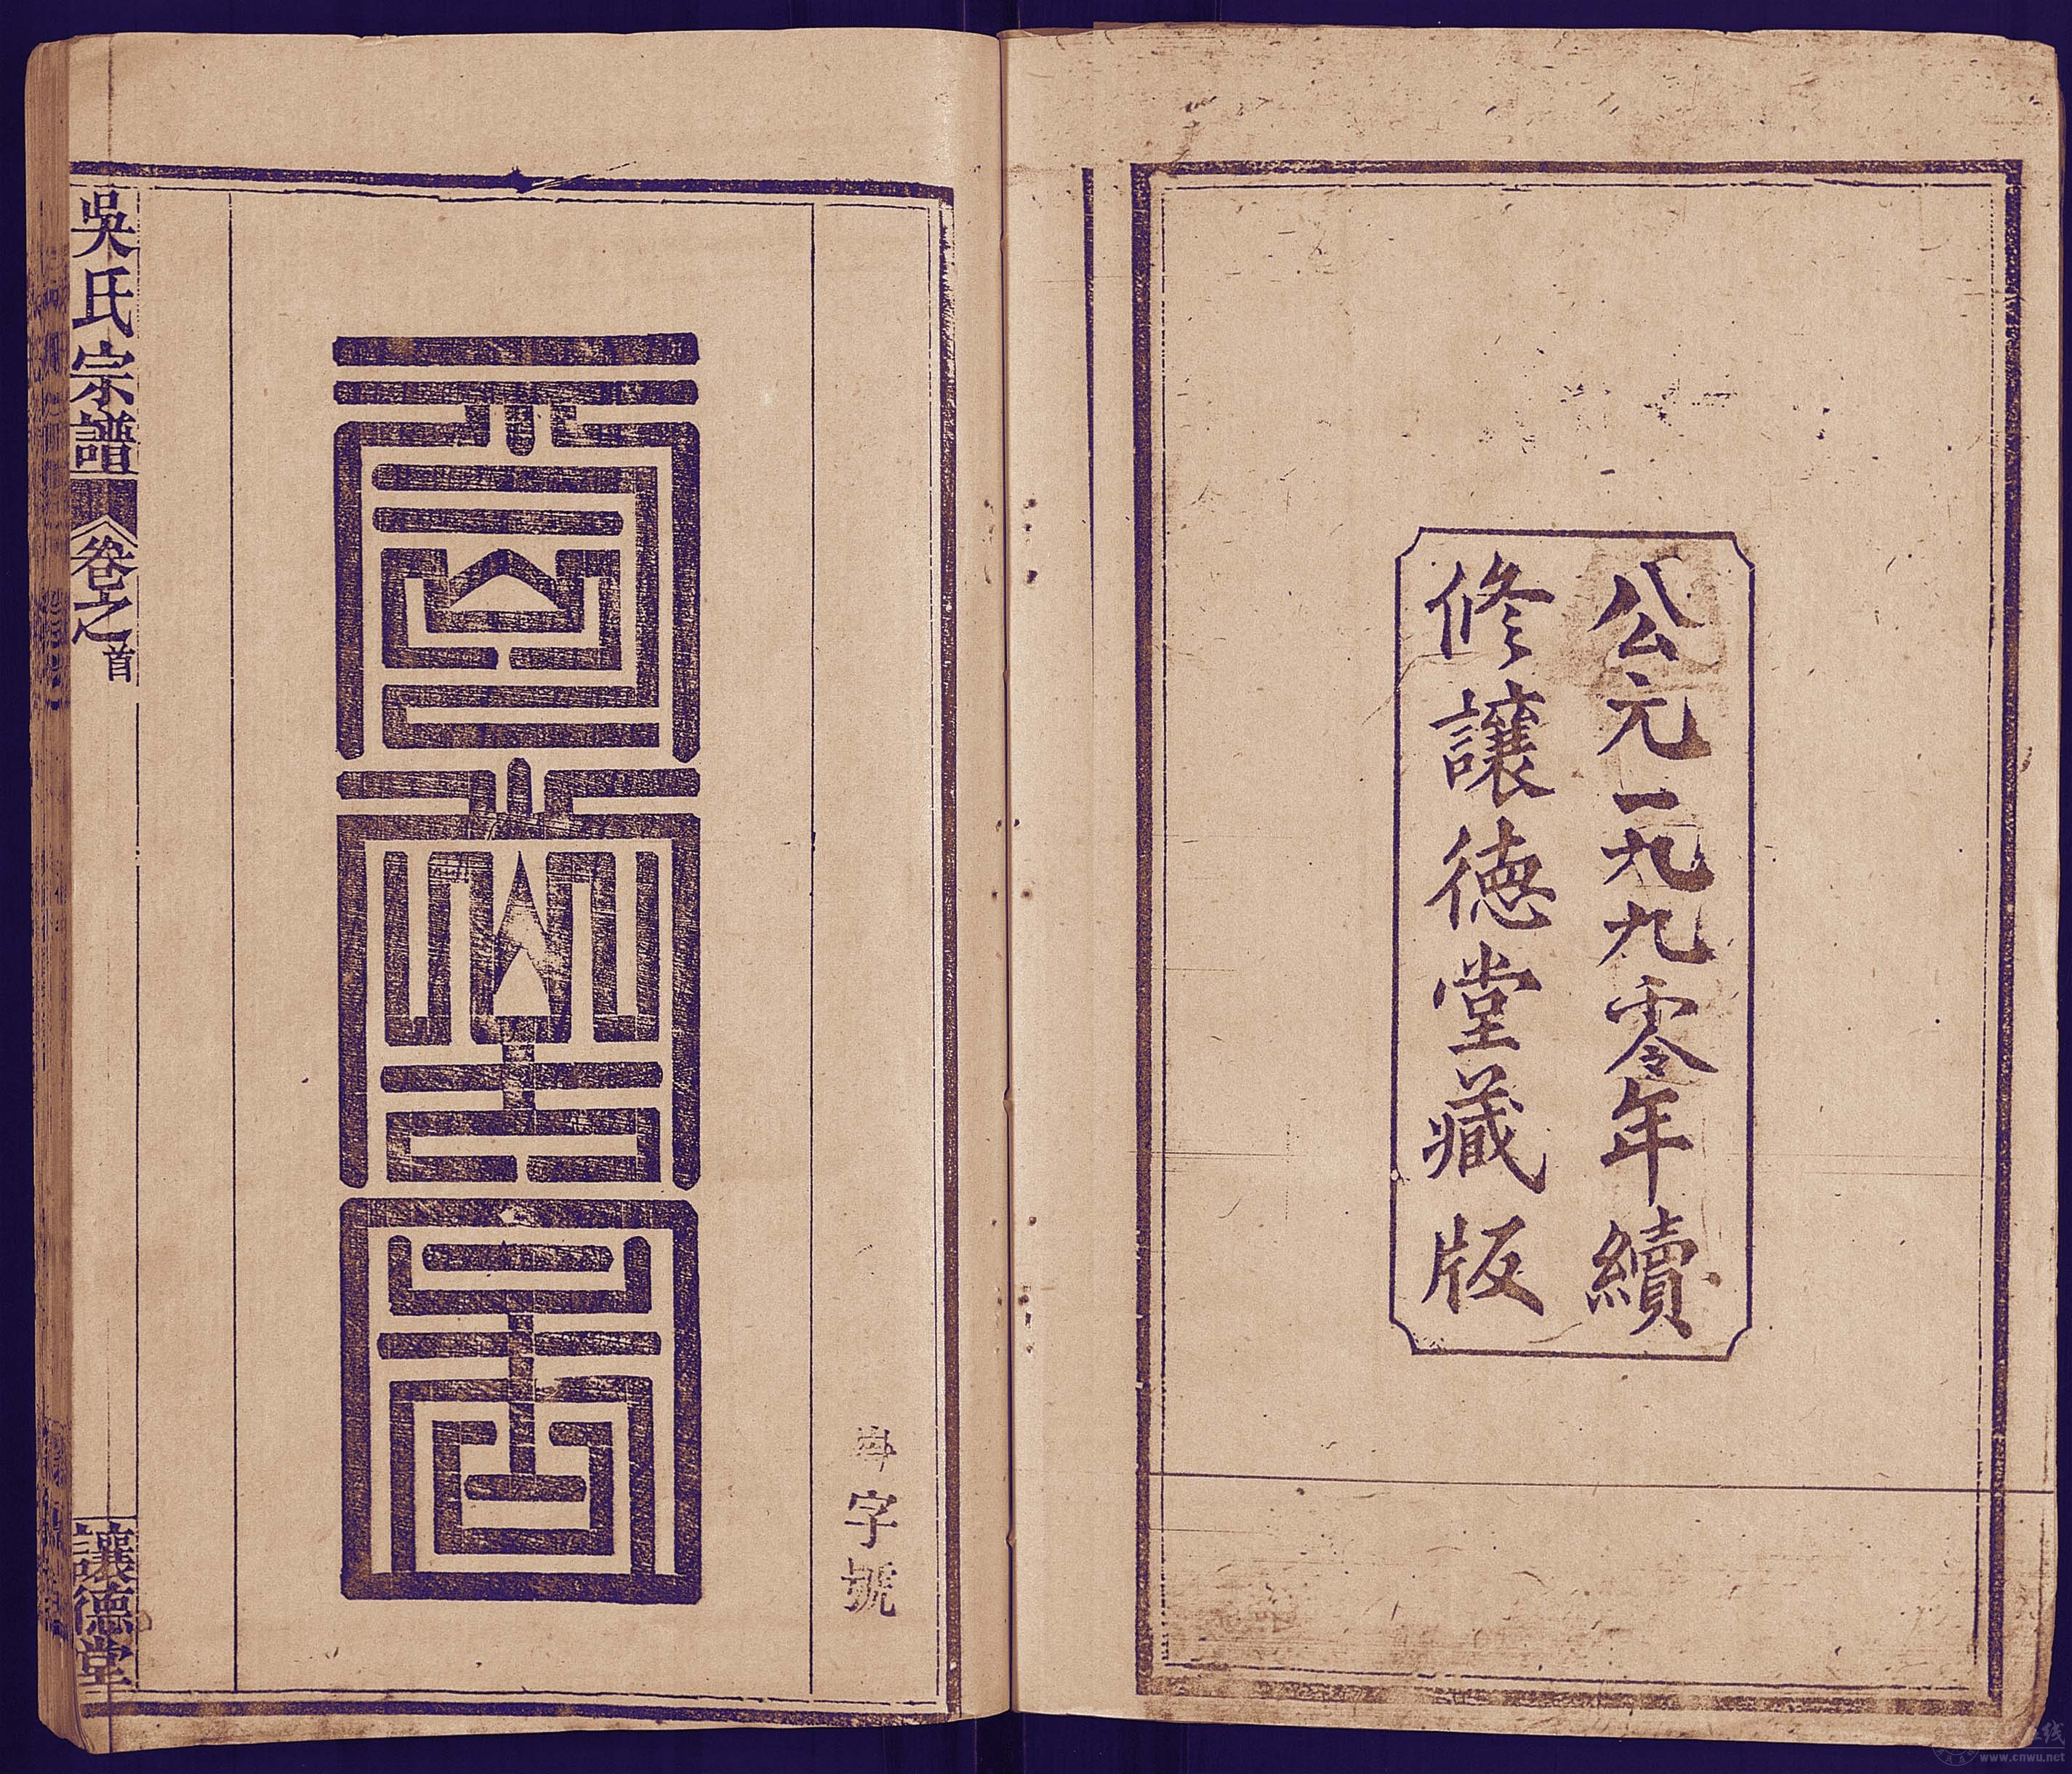 公元一九九零年續
修讓德堂藏版
字號
吳氏宗譜
卷之首
讓德堂
www.cnwu.net